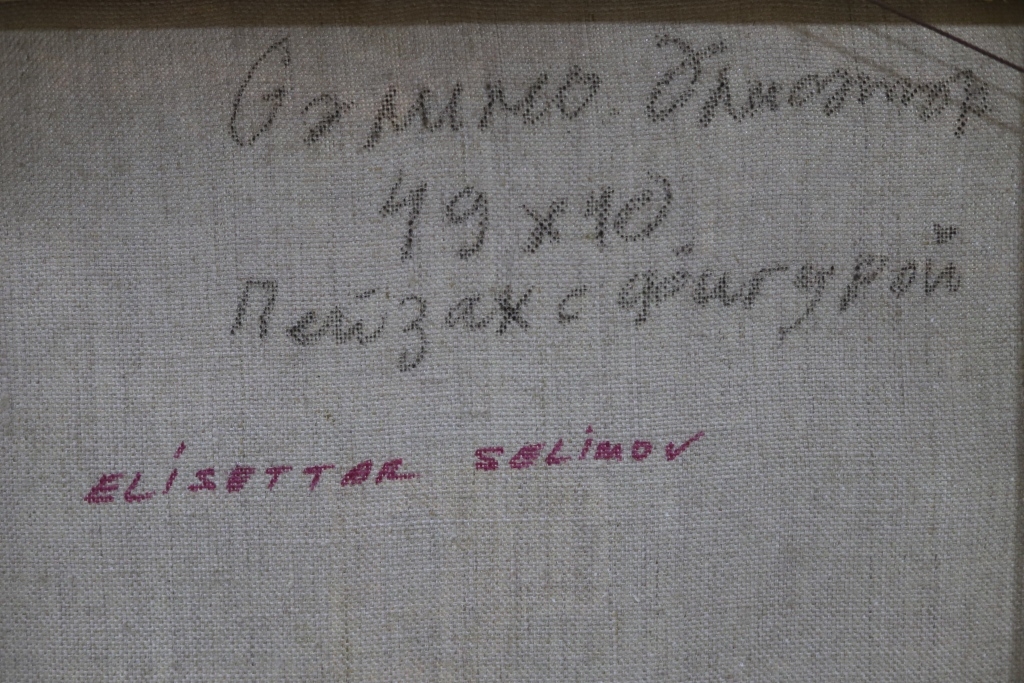 Сэлимо
49 x 40
Пейзаж с фигурой
ELİSETTAR SELİMOV